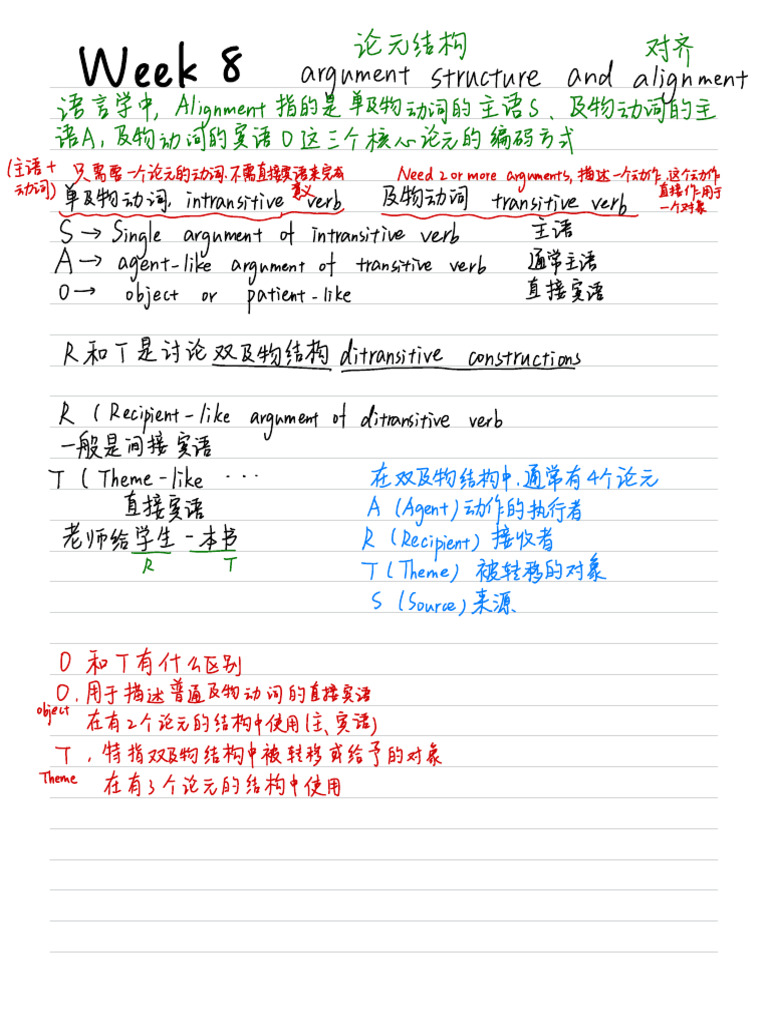 论元结构 对齐
Week 8 argument structure and alignment
语言学中, Alignment 指的是单及物动词的主语S、及物动词的主
语A, 及物动词的宾语O这三个核心论元的编码方式
(主语+动词) 只需要一个论元的动词.不需直接宾语来完成意义
Need 2 or more arguments, 描述一个动作,这个动作直接作用于一个对象
单及物动词, intransitive verb 及物动词 transitive verb
S → Single argument of intransitive verb 主语
A → agent-like argument of transitive verb 通常主语
O → object or patient-like 直接宾语
R和T是讨论双及物结构 ditransitive constructions
R (Recipient-like argument of ditransitive verb
一般是间接宾语
T (Theme-like ···
直接宾语
老师给学生一本书
R T
在双及物结构中,通常有4个论元
A (Agent) 动作的执行者
R (Recipient) 接收者
T (Theme) 被转移的对象
S (Source) 来源.
O 和T有什么区别
O, 用于描述普通及物动词的直接宾语
object 在有2个论元的结构中使用(主、宾语)
T, 特指双及物结构中被转移或给予的对象
Theme 在有3个论元的结构中使用